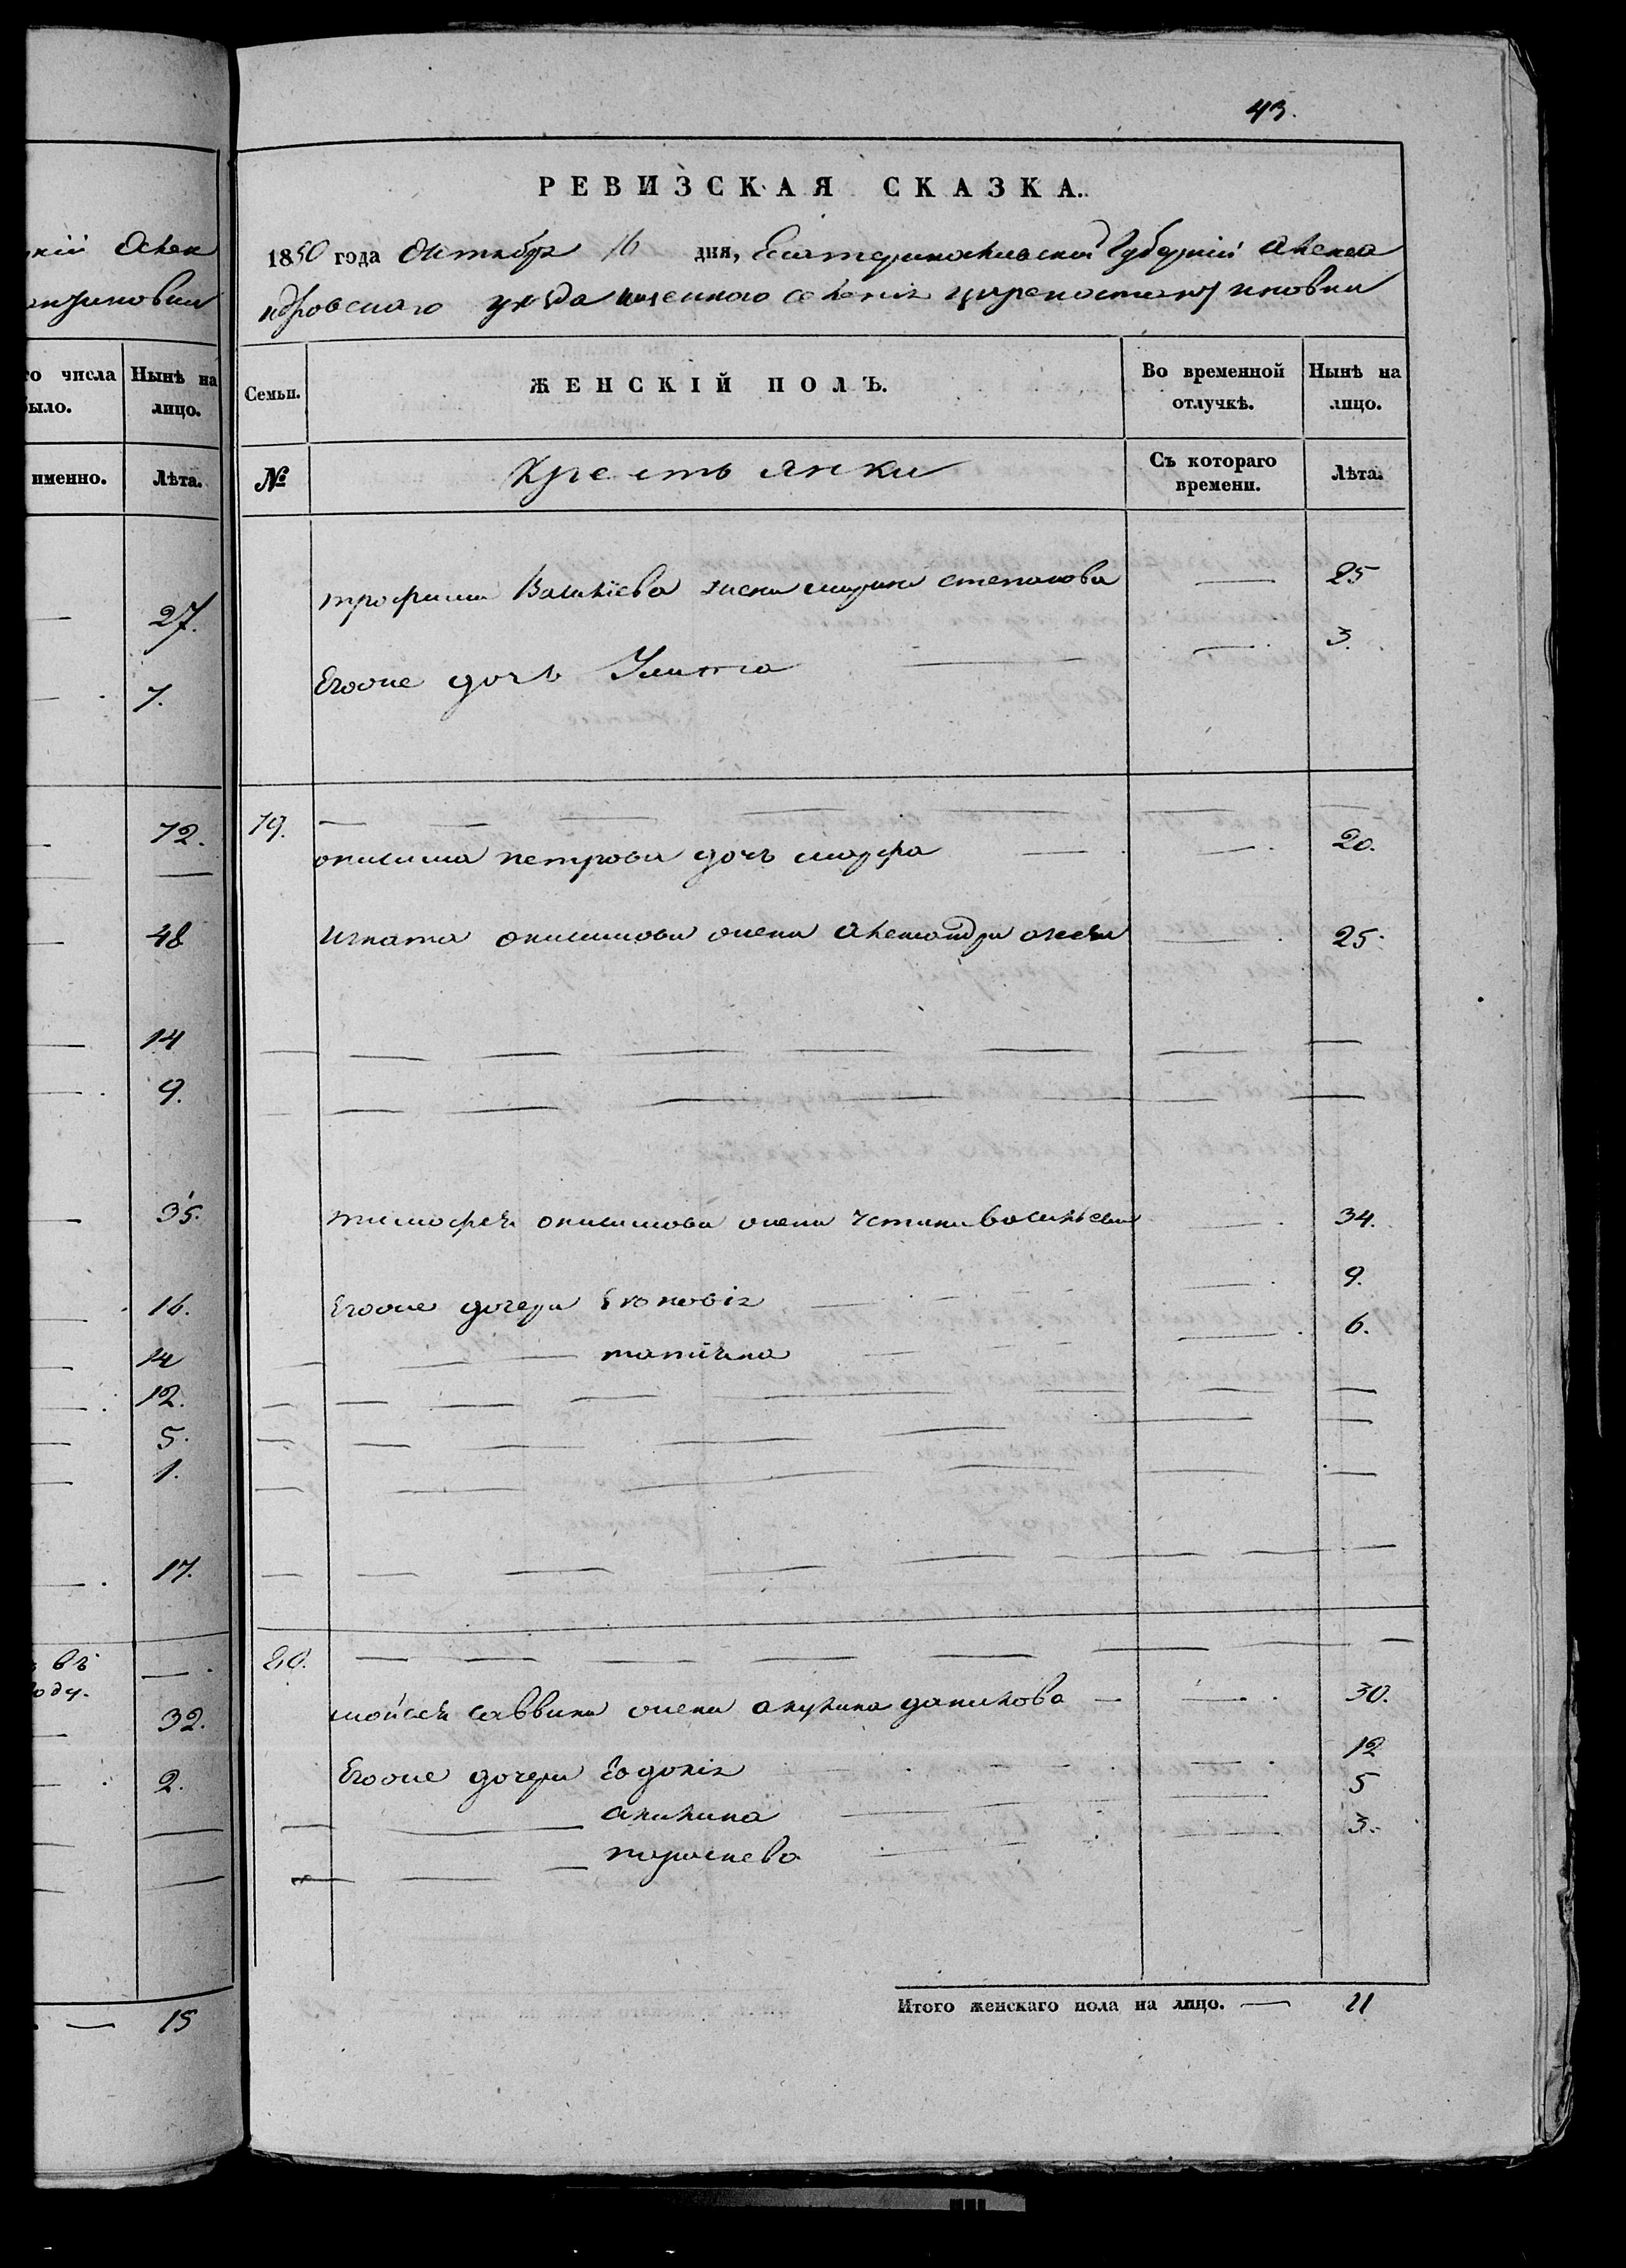 кій Алек
о числа
было.
Нынѣ на
лицо.
именно.
Лѣта.
27.
7.
72.
48
14
9.
35.
16.
14
12.
5.
1.
17.
въ
году.
32.
2.
15
43.
РЕВИЗСКАЯ СКАЗКА.
1850 года Октября 16 дня, Екатеринославской Губерніи Алекса
ндровского уезда казенного селенія
Семьи.
ЖЕНСКІЙ ПОЛЪ.
Во временной
отлучкѣ.
Нынѣ на
лицо.
№
Крестьянки
Съ котораго
времени.
Лѣта.
трофима Василіева жена марина степанова — 25
Егоже дочь Улита — — 3.
79.
онисима петрова дочь марфа — — 20.
игната онисимова жена александра — 25.
тимофея онисимова жена устина васильева — 34.
Егоже дочери — 9.
татияна — 6.
80.
мойсея саввина жена акулина данилова — — 30.
Егоже дочери Евдокія — 12
акилина — 5
параскева — 3.
Итого женскаго пола на лицо. — 11